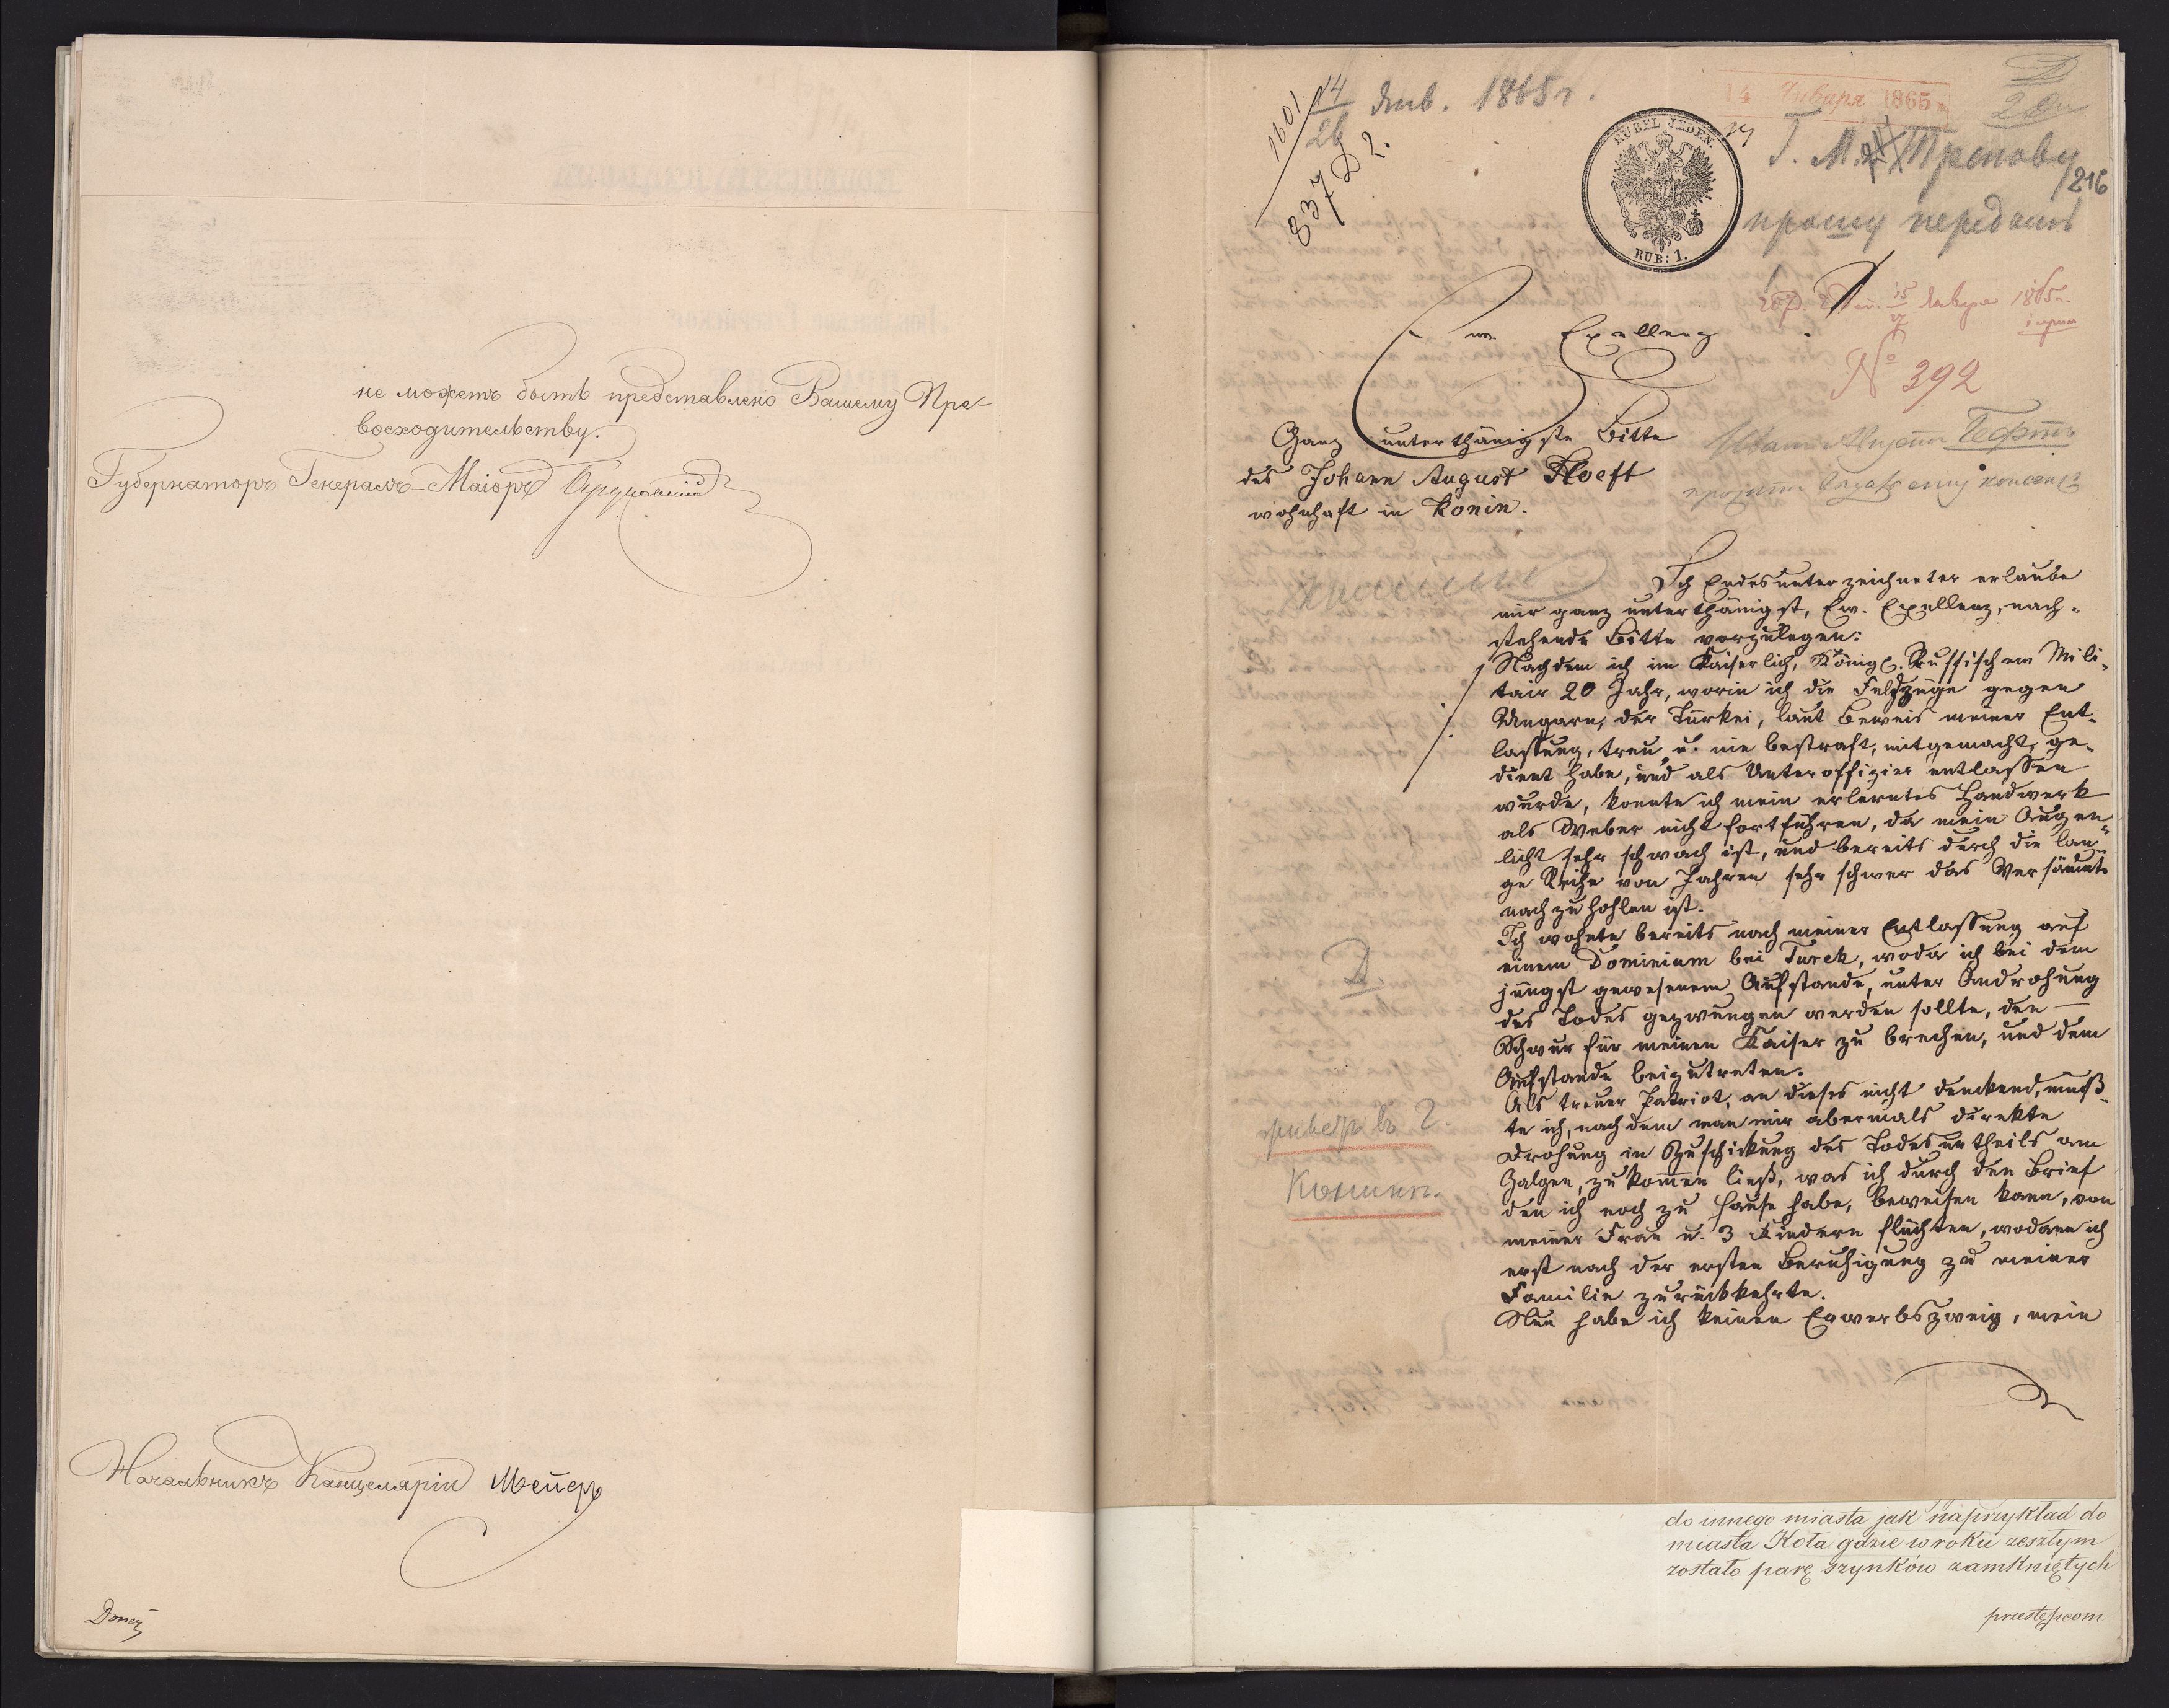 не можетъ быть представлено Вашему Пре-
восходительству.
Губернаторъ Генералъ-Маіоръ
Начальникъ Канцеляріи Мейеръ
1601
14/26 Янв. 1865 г.
837 D 2.
RUBEL JEDEN.
RUB: 1.
14 Января 1865
Г. М. Трепову
216
прошу передать
15/27 Января 1865 г.
№ 392
Ew. Exellenz
Ganz unterthänigste Bitte
des Johann August Hoeft
wohnhaft in Konin.
Ich Endesunterzeichneter erlaube
mir ganz unterthänigst, Ew. Exellenz, nach-
stehende Bitte vorzulegen:
Nachdem ich im Kaiserlich, Königl. Russischem Mili-
tair 20 Jahr, worin ich die Feldzüge gegen
Ungarn, der Türkei, laut Beweis meiner Ent-
lassung, treu u. nie bestraft, mitgemacht, ge-
dient habe, und als Unteroffizier entlassen
wurde, konnte ich mein erlerntes Handwerk
als Weber nicht fortführen, da mein Augen-
licht sehr schwach ist, und bereits durch die lan-
ge Reihe von Jahren sehr schwer das Versäumte
nachzuhohlen ist.
Ich wohnte bereits nach meiner Entlassung auf
einem Dominium bei Turek, woda ich bei dem
jüngst gewesenem Aufstande, unter Androhung
des Todes gezwungen werden sollte, den
Schwur für meinen Kaiser zu brechen, und dem
Aufstande beizutreten.
Als treuer Patriot, an dieses nicht denkend, muß-
te ich, nachdem man mir abermals direkte
Drohung in Zuschickung des Todesurtheils am
Galgen, zukomen ließ, was ich durch den Brief
den ich noch zu Hause habe, beweisen kann, von
meiner Frau u. 3 Kindern flüchten, wodann ich
erst nach der ersten Beruhigung zu meiner
Familie zurückkehrte.
Nun habe ich keinen Erwerbszweig, mein
D
въ г.
Конинъ.
do innego miasta jak naprzykład do
miasta Koła gdzie w roku zeszłym
zostało parę szynków zamkniętych
przestępcom